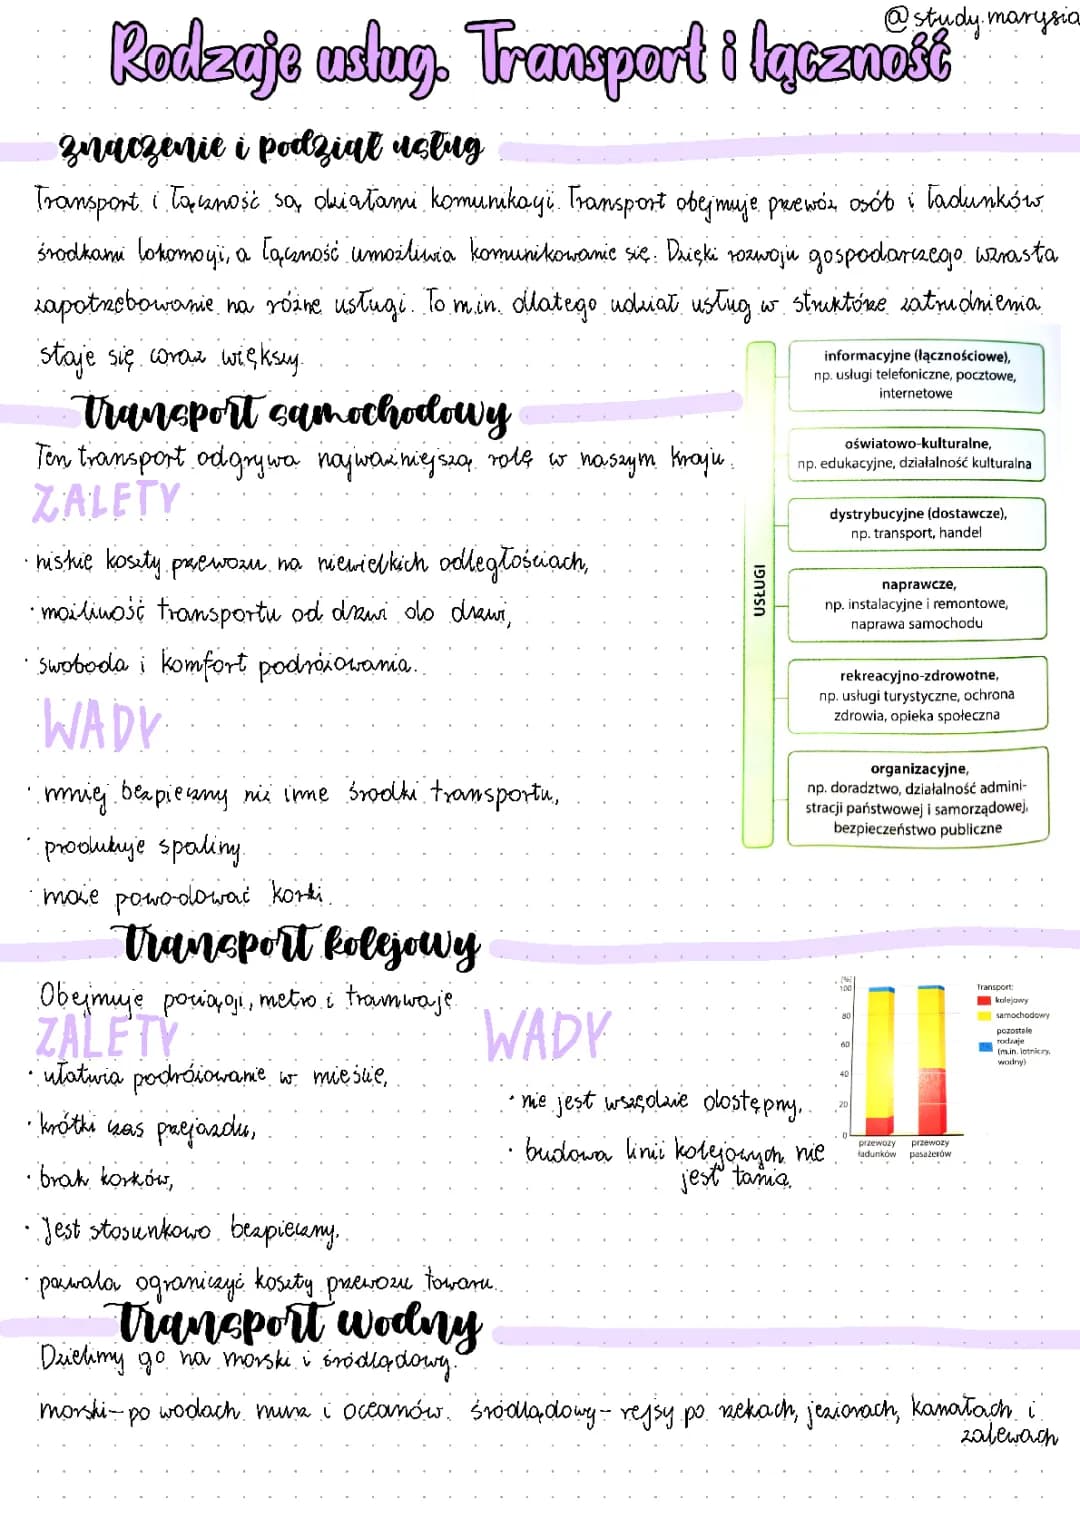 @study.marysia
Rodzaje usług. Transport i łączność
znaczenie i podział usług
Transport i łączność są działami komunikacji. Transport obejmuje przewóz osób i ładunków
środkami lokomocji, a łączność umożliwia komunikowanie się. Dzięki rozwoju gospodarczego wzrasta
zapotrzebowanie na różne usługi. To m.in. dlatego udział usług w struktórze zatrudnienia
staje się coraz większy.
Transport samochodowy
Ten transport odgrywa najważniejszą rolę w naszym kraju.
ZALETY
· niskie koszty przewozu na niewielkich odległościach,
· możliwość transportu od drzwi do drzwi,
· swoboda i komfort podróżowania.
WADY
· mniej bezpieczny niż inne środki transportu,
· produkuje spaliny
· może powodować korki.
USŁUGI
informacyjne (łącznościowe),
np. usługi telefoniczne, pocztowe,
internetowe
oświatowo-kulturalne,
np. edukacyjne, działalność kulturalna
dystrybucyjne (dostawcze),
np. transport, handel
naprawcze,
np. instalacyjne i remontowe,
naprawa samochodu
rekreacyjno-zdrowotne,
np. usługi turystyczne, ochrona
zdrowia, opieka społeczna
organizacyjne,
np. doradztwo, działalność admini-
stracji państwowej i samorządowej,
bezpieczeństwo publiczne
Transport kolejowy
Obejmuje pociągi, metro i tramwaje.
ZALETY
· ułatwia podróżowanie w mieście,
· krótki czas przejazdu,
· brak korków,
· Jest stosunkowo bezpieczny,
· pozwala ograniczyć koszty przewozu towaru.
WADY
· nie jest wszędzie dostępny,
· budowa linii kolejowych nie
jest tania.
[%]
100
80
60
40
20
0
przewozy
ładunków
przewozy
pasażerów
Transport:
kolejowy
samochodowy
pozostałe
rodzaje
(m.in. lotniczy,
wodny)
Transport wodny
Dzielimy go na morski i śródlądowy.
morski – po wodach mórz i oceanów. śródlądowy – rejsy po rzekach, jeziorach, kanałach i
zalewach